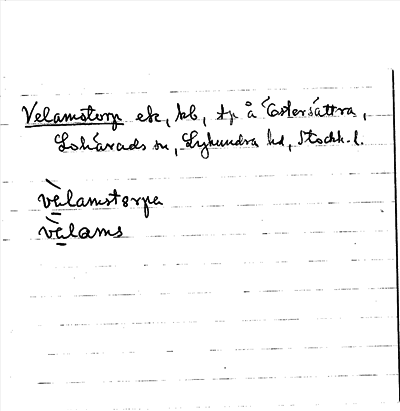 Velamstorp ek, kb, tp å Östersättra,
Lohärads sn, Lyhundra hd, Stockh. l.
vèlamstɔrpa
vèlams